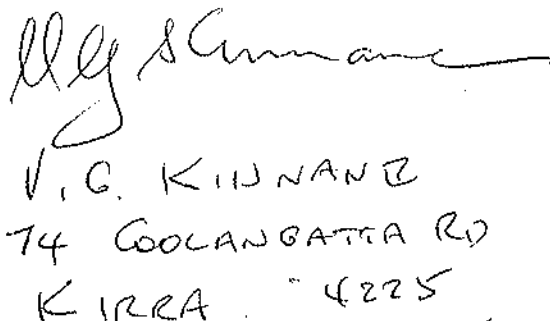 V. G. KINNANE
74 COOLANGATTA RD
KIRRA. 4225